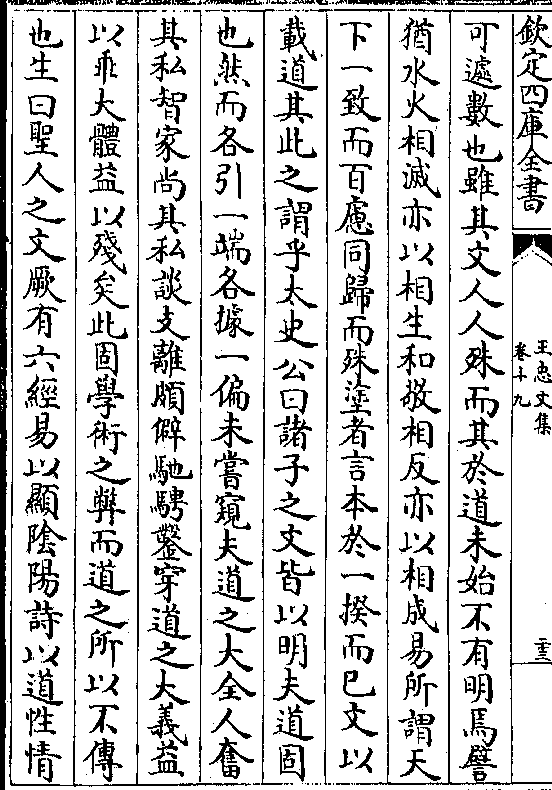 欽定四庫全書
王忠文集
卷十九
二十三
可遽數也雖其文人人殊而其於道未始不有明焉譬
猶水火相滅亦以相生和敬相反亦以相成易所謂天
下一致而百慮同歸而殊塗者言本於一揆而已文以
載道其此之謂乎太史公曰諸子之文皆以明夫道固
也然而各引一端各據一偏未嘗窺夫道之大全人奮
其私智家尚其私談支離頗僻馳騁鑿穿道之大義益
以乖大體益以殘矣此固學術之弊而道之所以不傳
也生曰聖人之文厥有六經易以顯陰陽詩以道性情